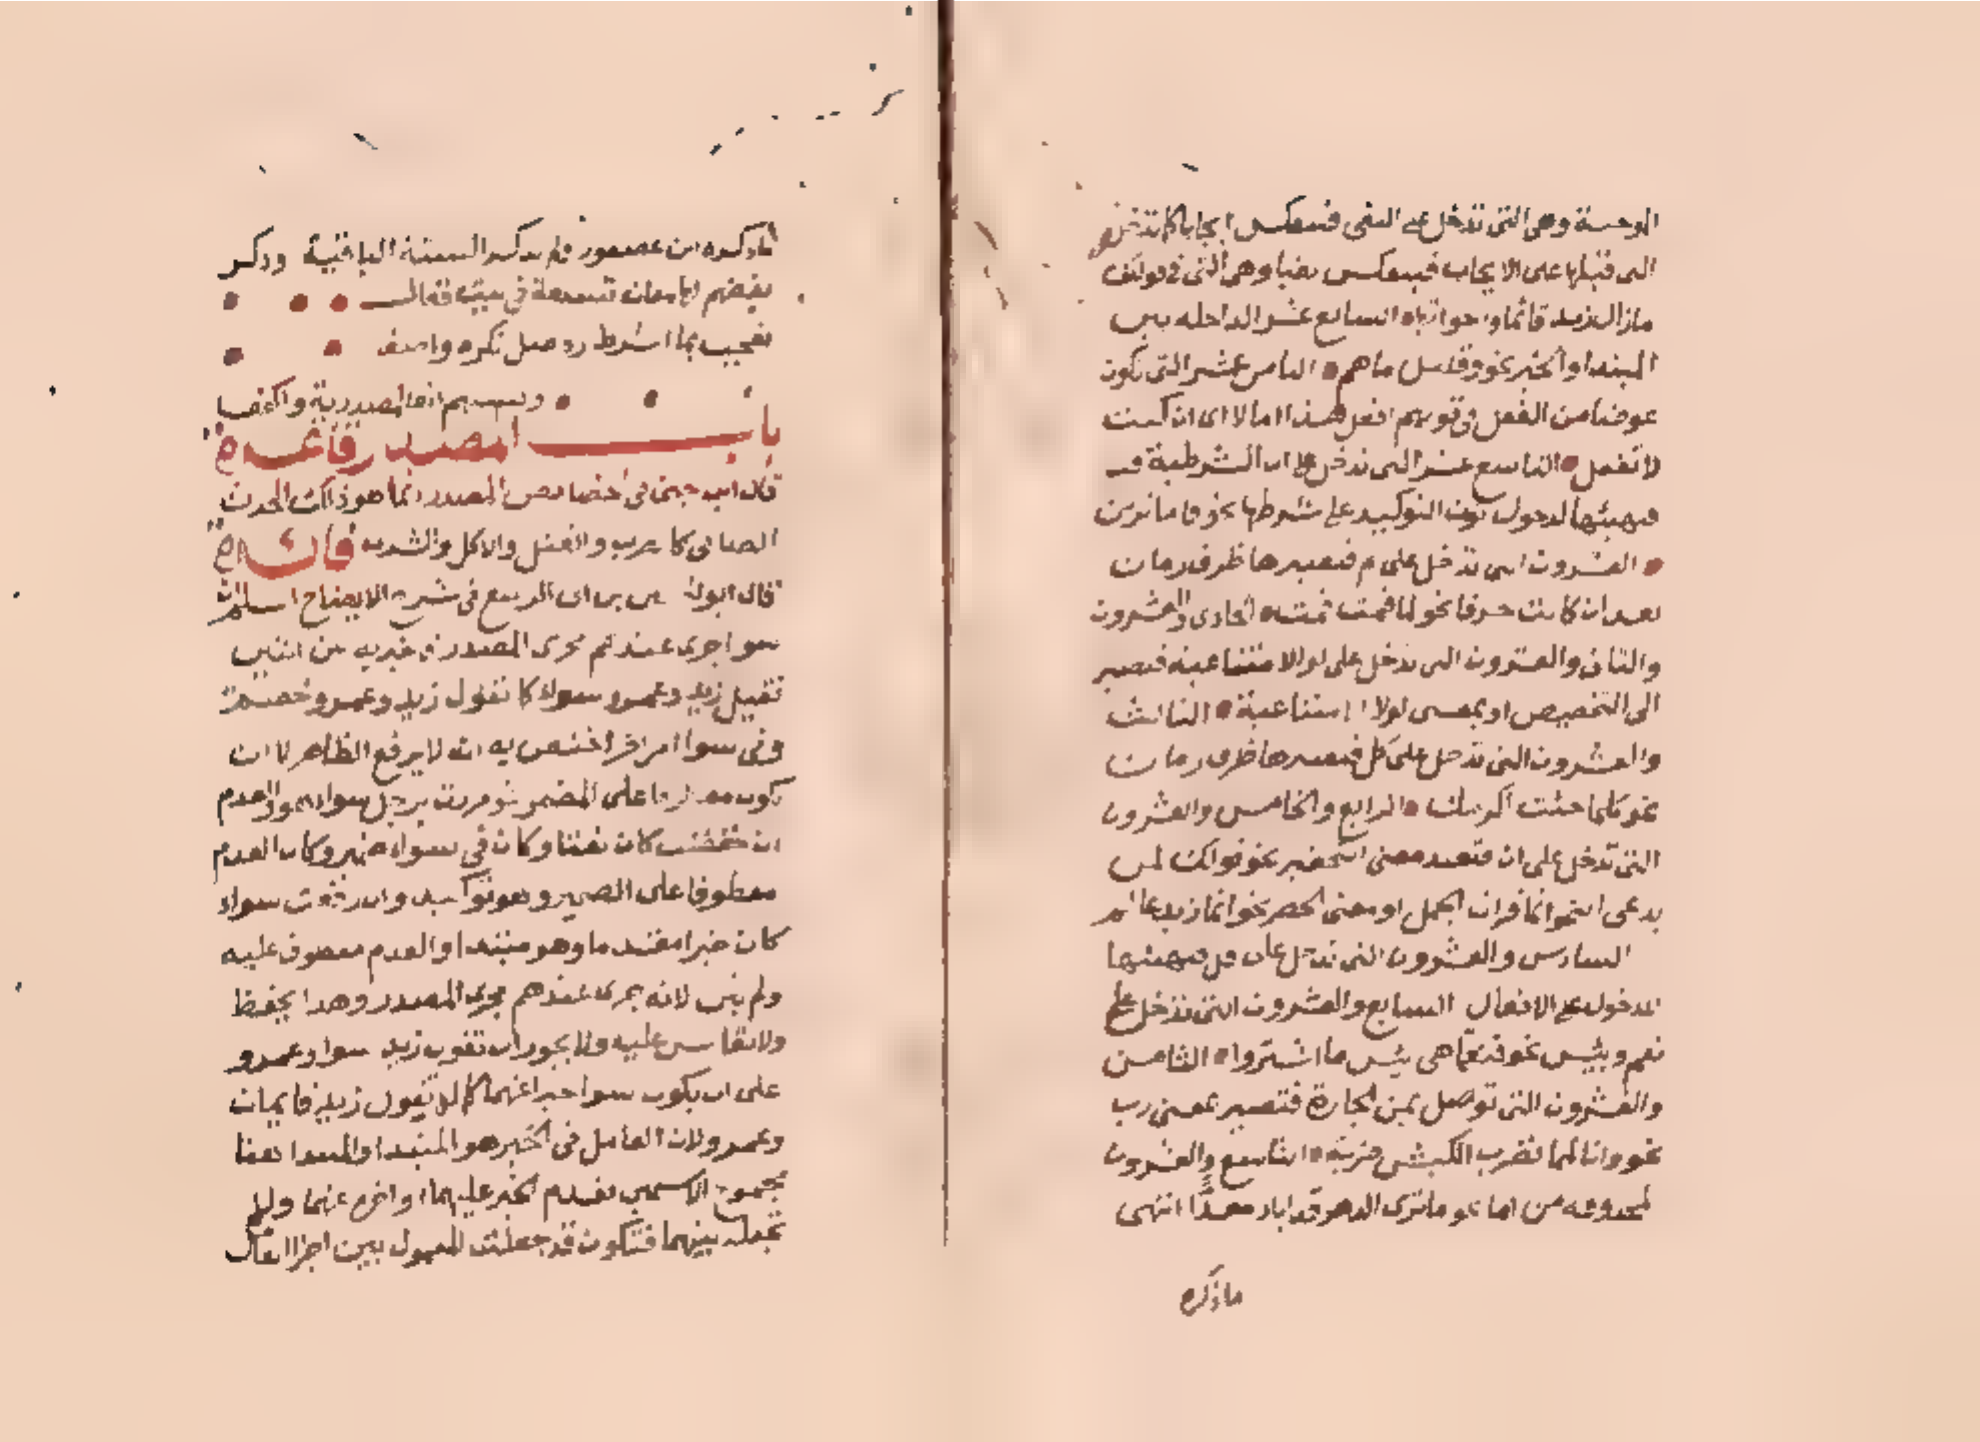 الموجبة وهي التي تدخل على النفي فينعكس ايجابا كما تدخل
التي قبلها على الايجاب فينعكس نفيا وهي التي في قولك
مازال زيد قائما واخواتها السابع عشر الداخله بين
المبتدا والخبر نحو وقليل ماهم الثامن عشر التي تكون
عوضا من الفعل في قولهم افعل هذا اما لا اى ان كنت
لا تفعل التاسع عشر التي تدخل على ان الشرطية
فتهيئها لدخول نون التوكيد على شرطها نحو فاما ترين
العشرون التي تدخل على لم فتصيرها ظرف زمان
بعد ان كانت حرفا نحو لما قمت قمت الحادى والعشرون
والثانى والعشرون التي تدخل على لو لا امتناعية فتصير
الى التخصيص او بمعنى لولا الامتناعية الثالث
والعشرون التي تدخل على كل فتصيرها ظرف زمان
نحو كلما جئت اكرمتك الرابع والخامس والعشرون
التي تدخل على ان فتفيد معنى التحقير نحو قولك لمن
يدعى النحو انما قرات الجمل او معنى الحصر نحو انما زيد عالم
السادس والعشرون التي تدخل على قل فتهيئها
للدخول على الافعال السابع والعشرون التي تدخل على
نعم وبئس نحو فنعما هى بئس ما اشتروا الثامن
والعشرون التي توصل بمن الجارة فتصير بمعنى رب
نحو وانا لمما نضرب الكبش ضربة التاسع والعشرون
المحذوفه من اما نحو ماترى الدهر قد اباد معدا انتهى
ماذكره
ماذكره ابن عصفور ولم يذكر الستة الباقية وذكر
بعضهم لها معان تسعة في بيت فقال
تعجب بما اشرط زد صل نكره واصف
المصدرية واكففا
باب المصدر قاعدة
قال ابن جنى في الخصائص المصدر انما هو ذلك الحدث
الصافى كالضرب والقتل والاكل والشرب فائدة
قال ابو الحسين بن ابى الربيع في شرح الايضاح اسلم ان
سوا جرى عندهم مجرى المصدر فى خبره عن اثنين
فقيل زيد وعمرو سواء كما تقول زيد وعمرو خصم
وفى سوا امر اخر اختص به انه لا يرفع الظاهر الا ان
يكون معطوفا على المضمر نحو مررت برجل سواء هو والعدم
ان خفضت كان نعتا وكان في سواء ضمير وكان العدم
معطوفا على الضمير وهو توكيد وان رفعت سواء
كان خبرا مقدما وهو مبتدا والعدم معطوف عليه
ولم يثن لانه جرى عندهم مجرى المصدر وهذا يحفظ
ولا يقاس عليه ولا يجوز ان تقول زيد سوا وعمرو
على ان يكون سوا خبرا عنهما كما لا تقول زيد قايمان
وعمرو لان العامل في الخبر هو المبتدا والمبتدا هنا
مجموع الاسمين فقدم الخبر عليهما او اخر عنهما ولا
تجعله بينهما فتكون قد جعلت المعمول بين اجزا العامل